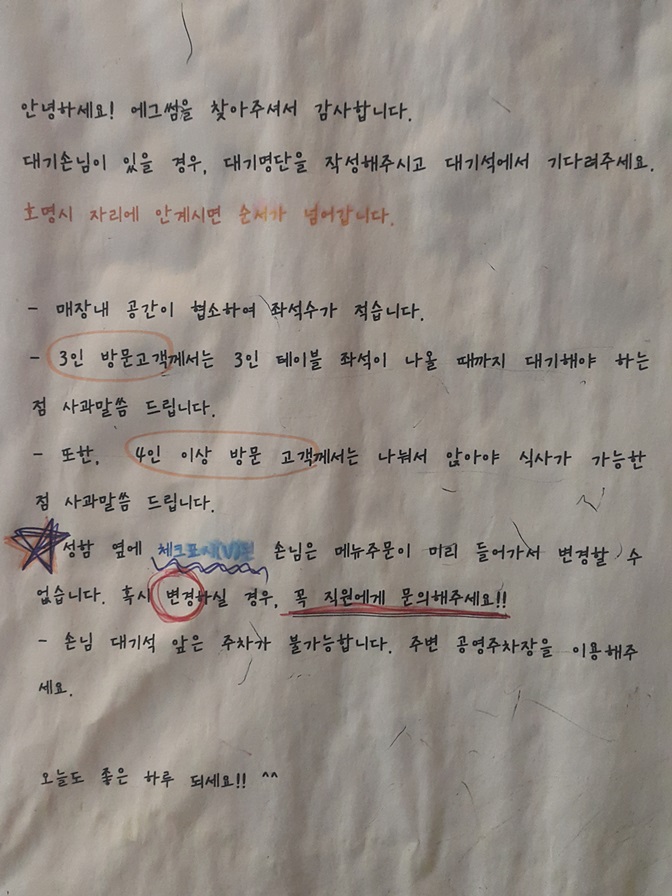 안녕하세요! 에그썸을 찾아주셔서 감사합니다.
대기손님이 있을 경우, 대기명단을 작성해주시고 대기석에서 기다려주세요.
호명시 자리에 안계시면 순서가 넘어갑니다.
- 매장내 공간이 협소하여 좌석수가 적습니다.
- 3인 방문고객께서는 3인 테이블 좌석이 나올 때까지 대기해야 하는
점 사과말씀 드립니다.
- 또한, 4인 이상 방문 고객께서는 나눠서 앉아야 식사가 가능한
점 사과말씀 드립니다.
성함 옆에 체크표시(V)된 손님은 메뉴주문이 미리 들어가서 변경할 수
없습니다. 혹시 변경하실 경우, 꼭 직원에게 문의해주세요!!
- 손님 대기석 앞은 주차가 불가능합니다. 주변 공영주차장을 이용해주
세요.
오늘도 좋은 하루 되세요!! ^^